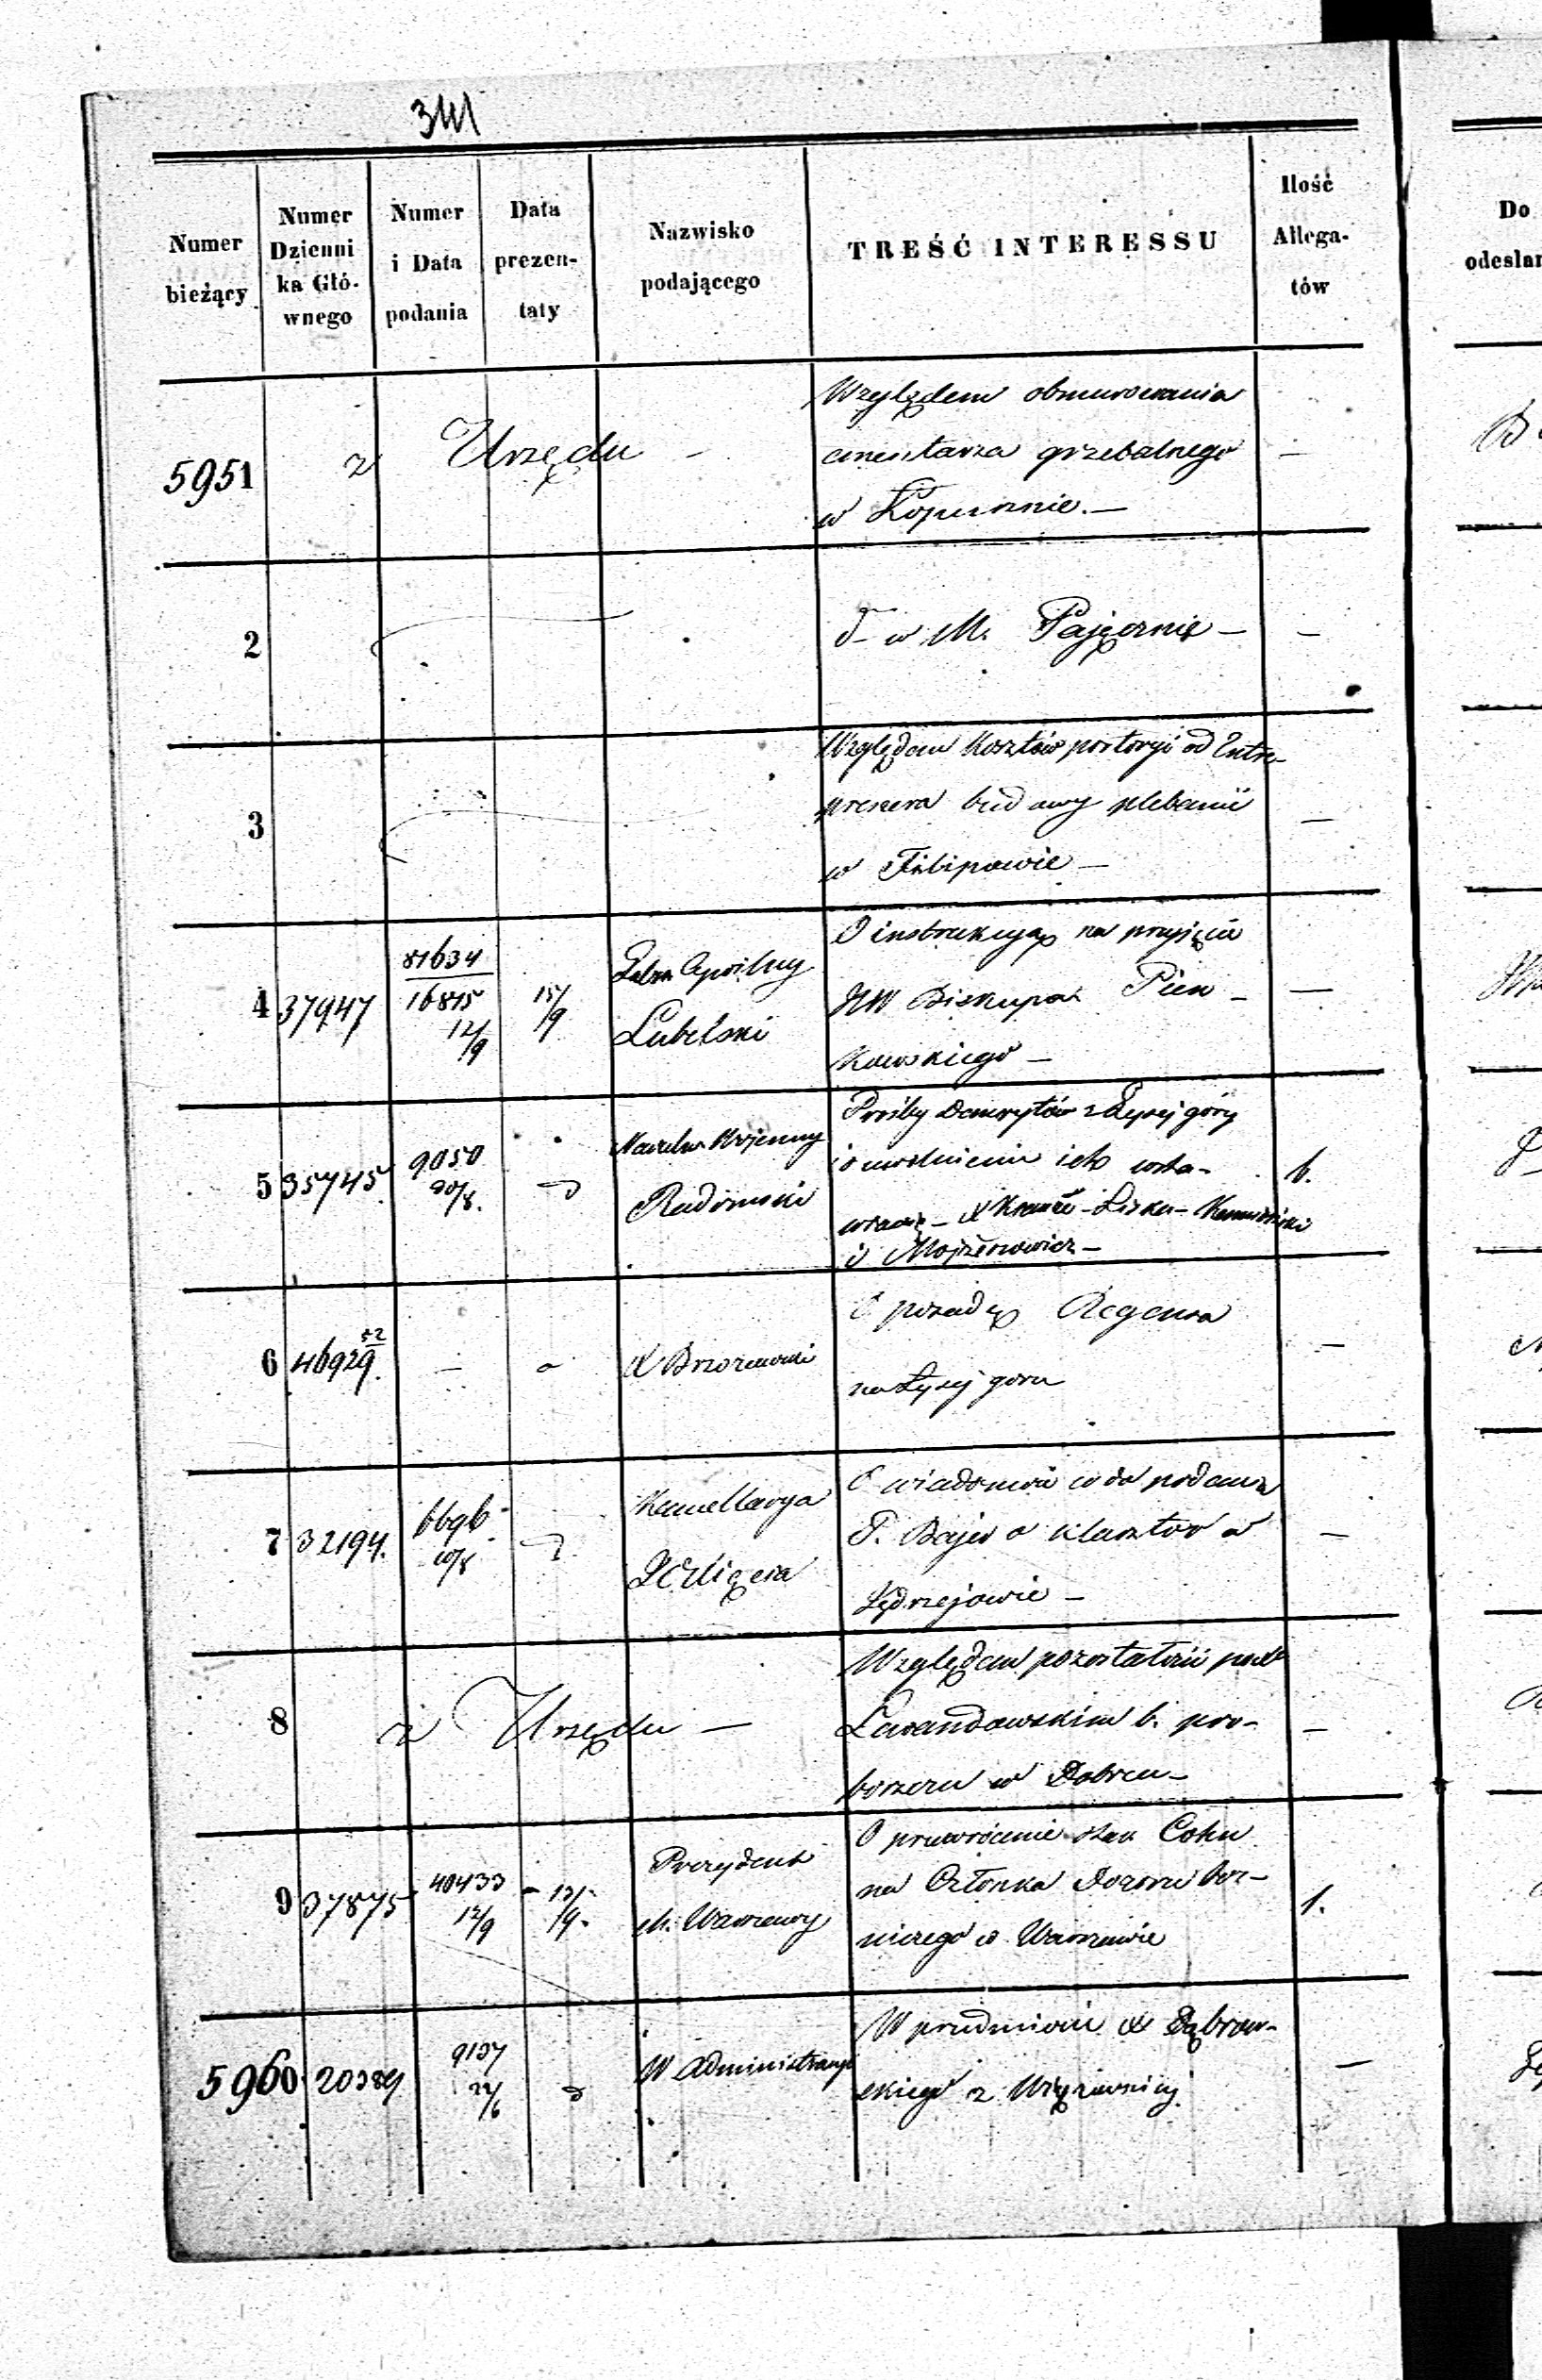 341
Numer bieżący
Numer Dzienni ka Głó- wnego
Numer i Data podania
Data prezen- taty
Nazwisko podającego
TREŚĆ INTERESSU
Ilość Allega- tów
Do
odesłan
5951
z Urzędu -
Względem obmurowania
cmentarza grzebalnego
w
—
2
d- w M. Pajęcznie —
—
3
Względem Kosztów portoryi od Entre-
prenera budowy plebanii
w Filipowie —
—
4
37947
81634
16815
12/9
15/9
Cywilny
Lubelski
O instrukcyą na przyjęcie
JW Biskupa Pień-
kowskiego —
—
5
35745
9050
20/8.
d
Naczelnik Wojenny
Radomski
Prośby Demerytów z Łysej góry
o uwolnienie ich wsta-
wienie - X - Liska -
i Mojżeszowicz —
6.
6
46929
52
—
X Brzozowski
O posadę Regensa
na Łysej górze
—
7
32194.
6696
10/8
d
Kancellarya
JO Xięcia
O wiadomość co do podania
P. Bajer o klasztor w
Jędrzejowie —
—
8
z Urzędu —
Względem pozostałości po X
Lewandowskim b. pro-
boszczu w Dobrcu —
—
9
37875
40433
12/9
13/9
Prezydent
M. Warszawy
O przywrócenie Cohn
na Członka Dozoru Boż-
niczego w Warszawie
1.
5960
20389
9137
22/6
d
W Administracyi
W przedmiocie X Dąbrow-
skiego z
—